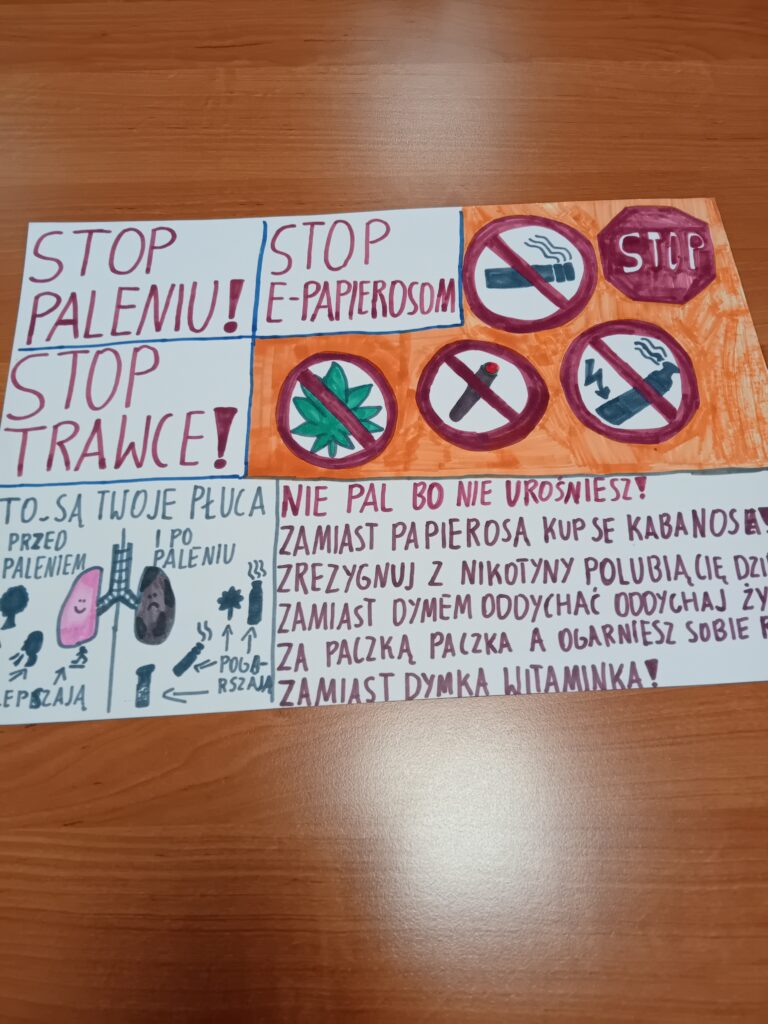 STOP
PALENIU!
STOP
E-PAPIEROSOM
STOP
STOP
TRAWCE!
TO SĄ TWOJE PŁUCA
PRZED
PALENIEM
I PO
PALENIU
EPSZAJĄ
POGO-
RSZAJĄ
NIE PAL BO NIE UROŚNIESZ!
ZAMIAST PAPIEROSA KUP SE KABANOSA!
ZREZYGNUJ Z NIKOTYNY POLUBIĄ CIĘ
ZAMIAST DYMEM ODDYCHAĆ ODDYCHAJ
ZA PACZKĄ PACZKA A OGARNIESZ SOBIE
ZAMIAST DYMKA WITAMINKA!